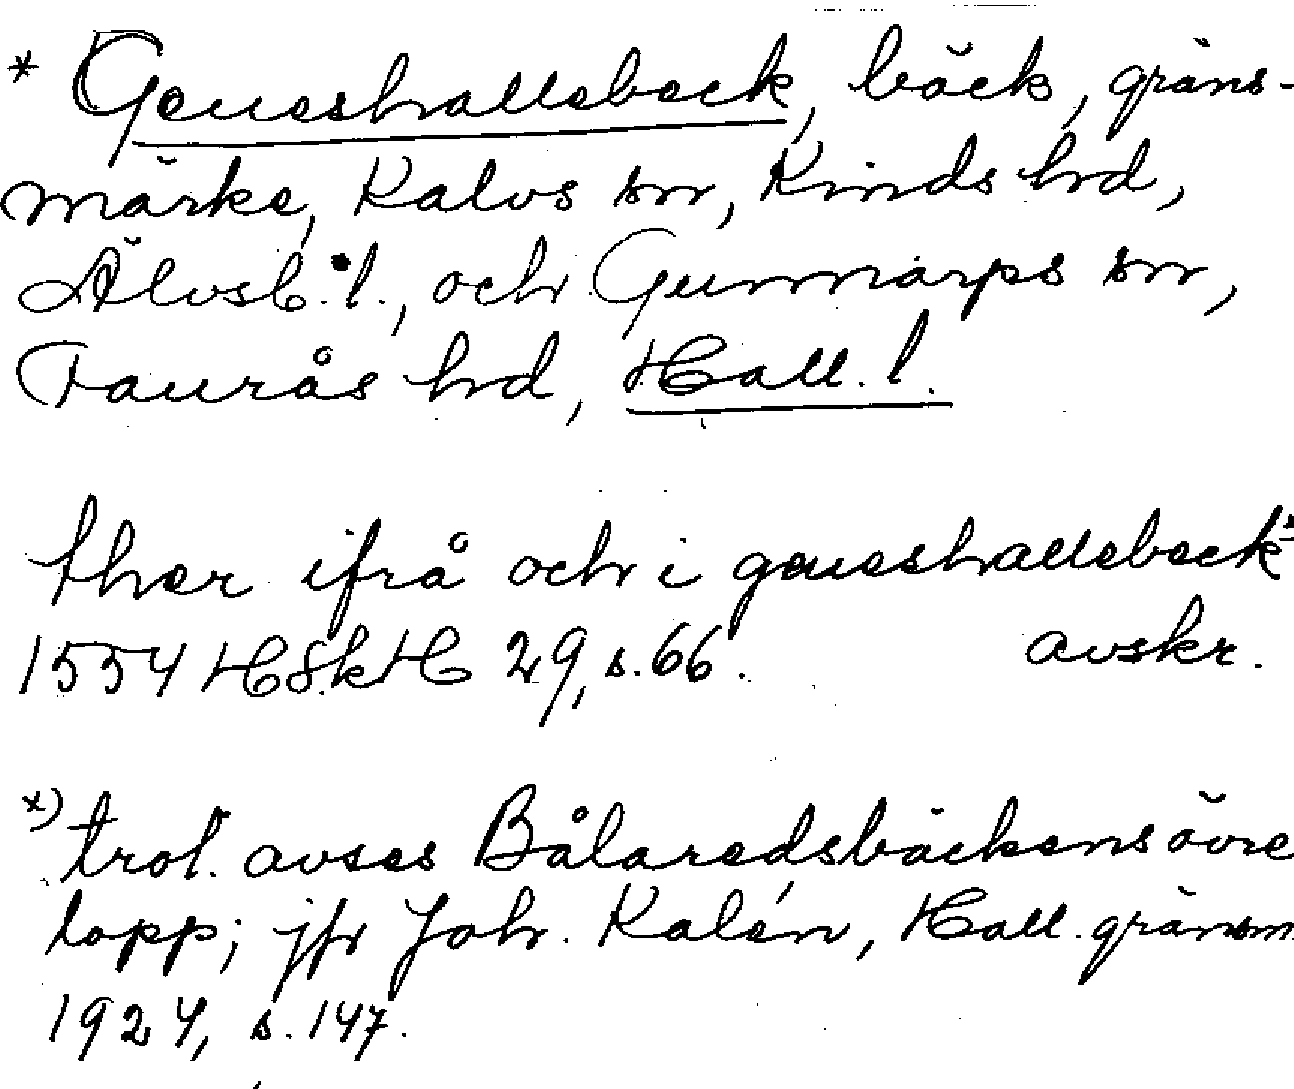 * Goueshallebeck, bäck, gräns-
märke, Kalvs sn, Kinds hd,
Älvsb. l., och Gunnarps sn,
Faurås hd, Hall. l.
ther ifrå och i goueshallebeck x)
1554 HSkH 29, s. 66. avskr.
x) trol. avses Bålaredsbäckens övre
lopp; jfr Joh. Kalén, Hall. gränsm.
1924, s. 147.